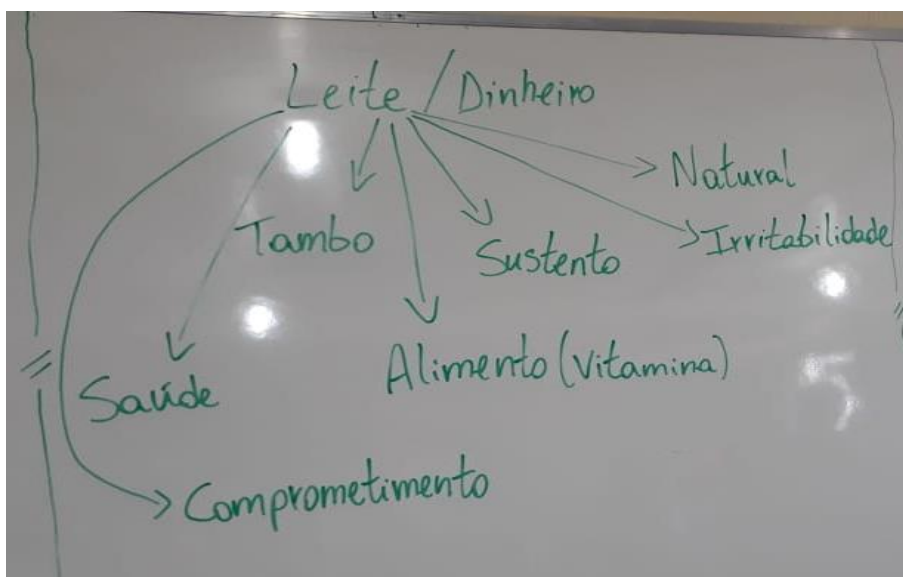 Leite / Dinheiro
Natural
Tambo
Irritabilidade
Sustento
Alimento (Vitamina)
Saúde
Comprometimento